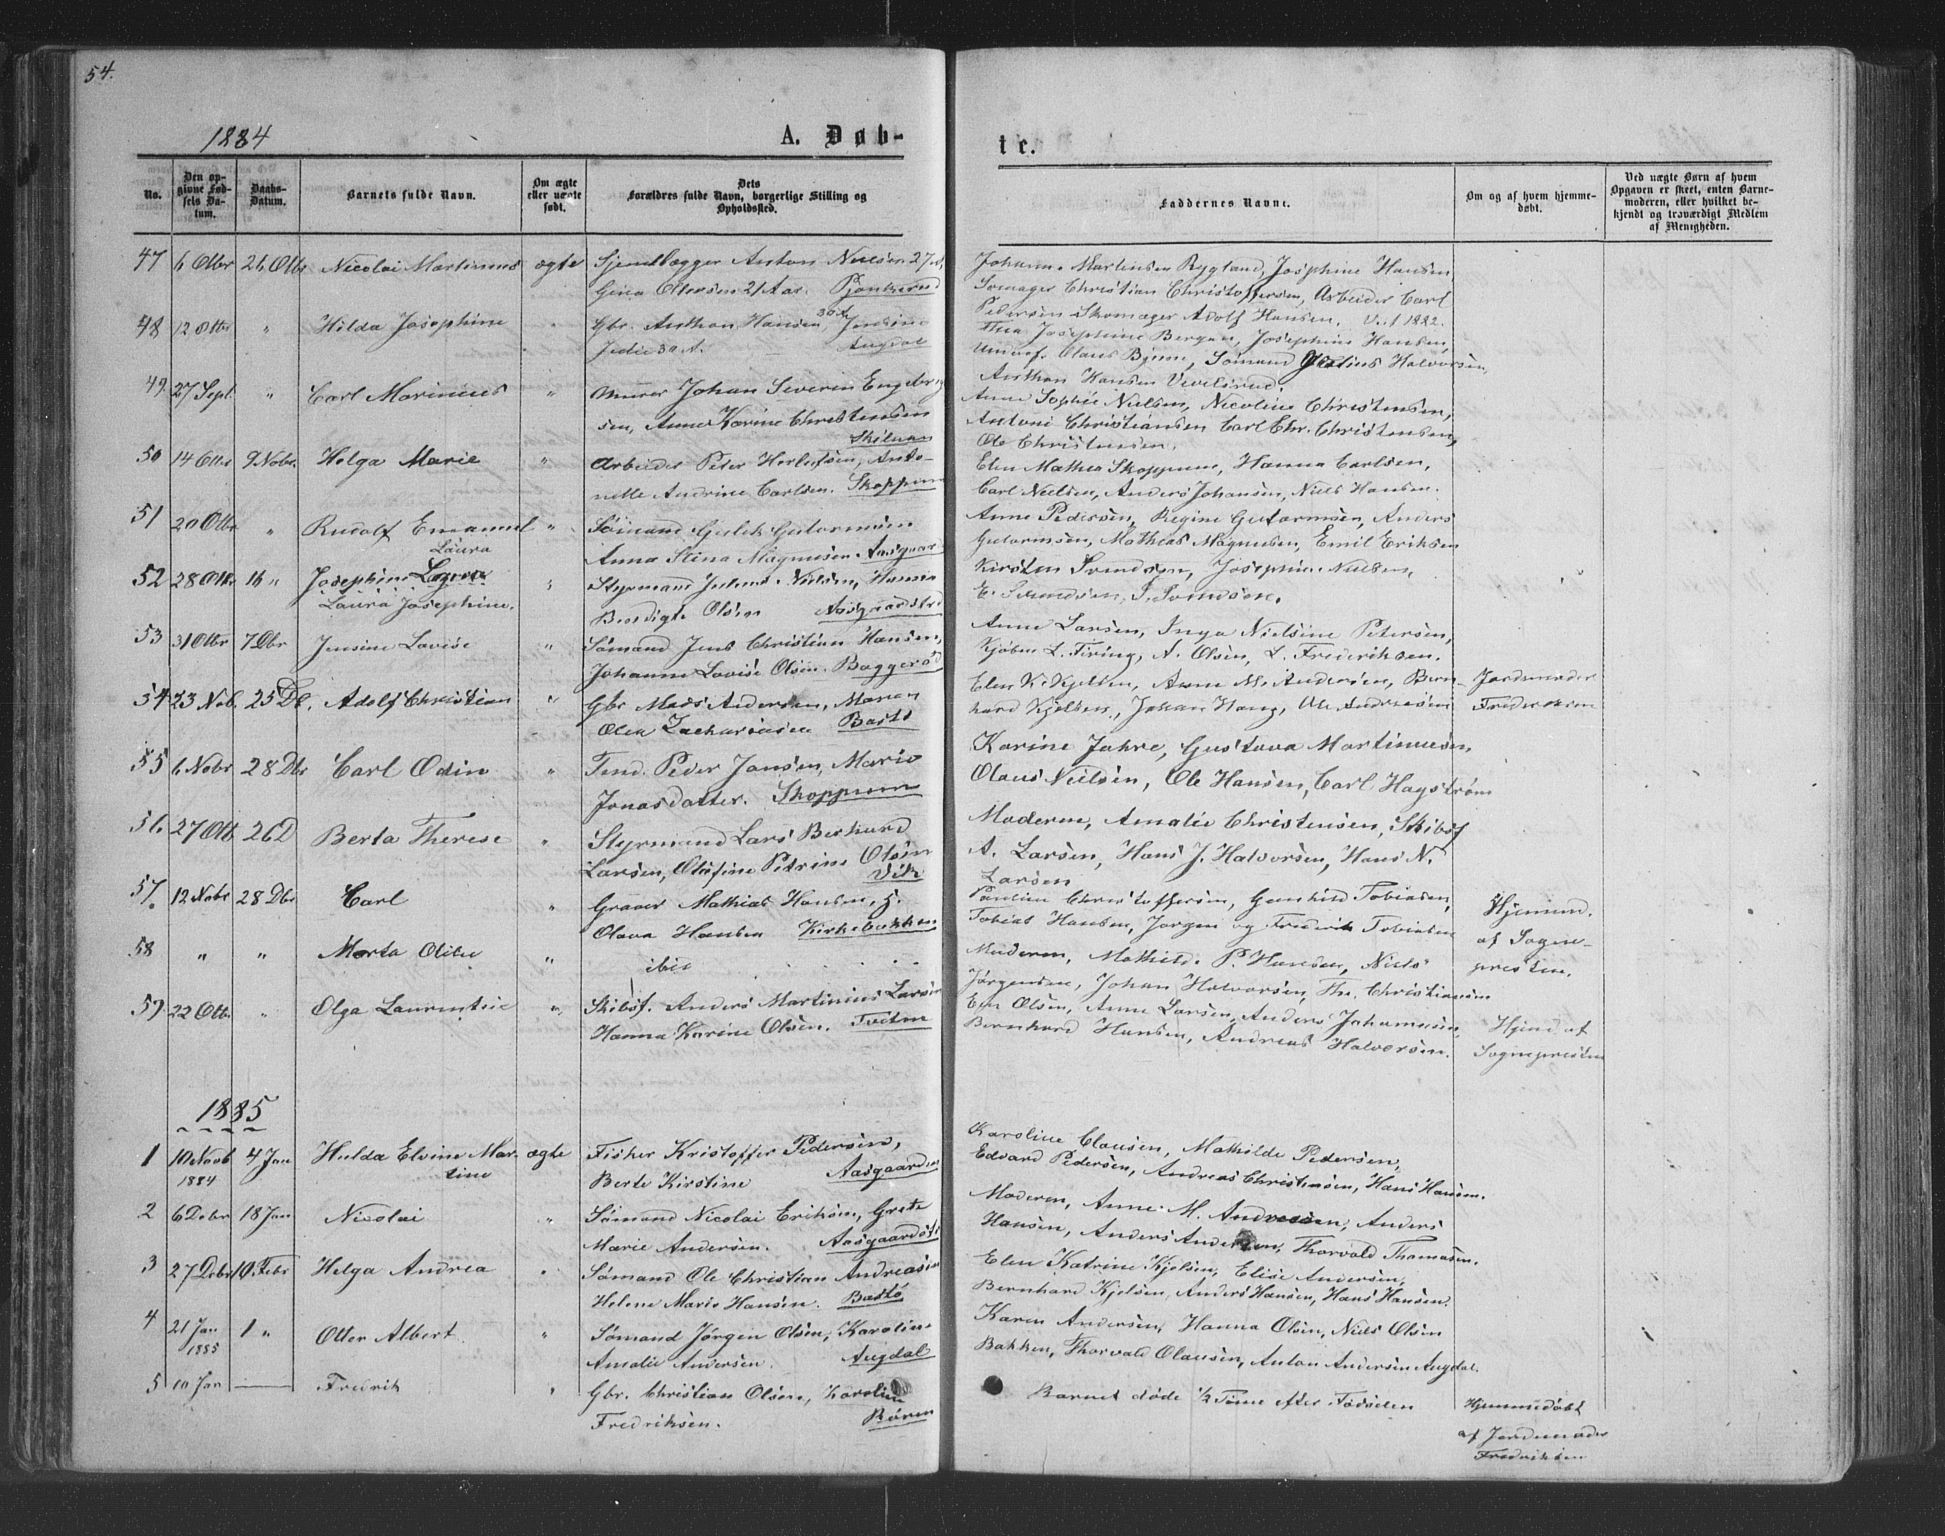 54.
1884
A. Døb-
te.
No.
Den op-
givne Fød-
sels Da-
tum.
Daabs-
Datum.
Barnets fulde Navn.
Om ægte
eller uægte
født.
Dets
Forældres fulde Navn, borgerlige Stilling og
Opholdssted.
Faddernes Navne.
Om og af hvem hjemme-
døbt.
Ved uægte Børn af hvem
Opgaven er skeet, enten Barne-
moderen, eller hvilket be-
kjendt og troværdigt Medlem
af Menigheden.
47 6 Otbr 26 Otbr Nicolai Martinius ægte Anton Nielsen 27
Gina 21 Aar.
Martinsen Rygland, Josephine Hansen
Christian Christoffersen, Arbeider Carl
Pedersen Skomager Adolf Hansen. 1882.
48 12 Otbr " Hilda Josephine " Gbr. Anthon Hansen 30
30 A. Augdal
Thea Josephine Bergan, Josephine Hansen,
Olaus Bjune, Sømand Halvorsen,
Anthon Hansen
49. 27 Sept. " Carl Marinius " Murer Johan Severin Engebrig
sen, Anne Karine Christensen
Anne Sophie Nielsen, Nicoline Christensen,
Antoni Christiansen Carl Chr. Christensen,
Ole Christensen.
50 14 Otbr 9 Nobr. Helga Marie " Arbeider Peter Herlofsen, Anto-
nette Andrine Carlsen. Skoppum
Elen Mathea Skoppum, Hanna Carlsen,
Carl Nielsen, Anders Johansen, Niels Hansen.
51 20 Otbr " Rudolf Emanuel " Sømand Gulik Gutormsen
Anna Stina Magnusen Aasgaard
Anne Pedersen, Regine Gutormsen, Anders
Gutormsen, Mathias Magnusen, Emil Eriksen
Laura
52 28 Otbr 16 " Josephine "
Laura Josephine.
Styrmand Julius Nielsen, Hanna
Benedigte Olsen Aasgaardstrd
Kirsten Svendsen, Josephine Nielsen,
E. Svendsen, S. Svendsen.
53 31 Otbr 7 Dbr Jensine Lovise " Sømand Jens Christian Hansen,
Johanne Lovise Olsen. Baggerød
Anne Larsen, Inga Nielsine Petersen,
Kjøbm. L. Firing, A. Olsen, L. Frederiksen.
54 23 Nob. 25 Db. Adolf Christian " Gbr Mads Andersen, Maren
Olea Zachariasen Bastø
Elen K. Kjelsen, Anne M. Andersen, Bern-
hard Kjelsen, Johan Haug, Ole Andersen
Jordemoder
Frederiksen
55 6 Nobr 28 Dbr Carl Odin " Tend. Peder Jansen, Marie
Jonasdatter. Skoppum
Karine Jahre, Gustava Martinusen,
Olaus Nielsen, Ole Hansen, Carl Hagstrøm
56. 27 Otb 26 D Berta Therese " Styrmand Lars Berhard
Larsen, Olufine Petrine Olsen
Vik
Moderen, Amalie Christensen, Skibsf
A. Larsen, Hans J. Halvorsen, Hans N.
Larsen
57. 12 Nobr 28 Dbr Carl " Graver Mathias Hansen, g.
Olava Hansen Kirkebakken
Pauline Christoffersen, Gunhild Tobiasen,
Tobias Hansen, Jørgen og Fredrik Tobiasen
Hjemmd.
af Sogne-
presten.
58 " " Marta Olibe " ibid
Moderen, Mathilde P. Hansen, Niels
Jørgensen, Johan Halvorsen, Th. Christiansen
59 22 Otbr. " Olga Laurentsie " Skibsf. Anders Martinius Larsen
Hanna Karine Olsen. Tveten
Olsen, Anne Larsen, Anders Johannesen,
Bernhard Hansen, Andreas Halvorsen.
Hjmd af
Sognepresten
1885
1 10 Novb 4 Jan Hulda Elvine Mar- ægte Fisker Kristoffer Pedersen,
1884 tine Berte Kirstine Aasgaarden
Karoline Clausen, Mathilde Pedersen,
Edvard Pedersen, Andreas Christensen, Hans Hansen.
2 6 Debr 18 Jan Nicolai " Sømand Nicolai Eriksen, Grete
Marie Andersen. Aasgaardst.
Moderen, Anne M. Andresen, Anders
Hansen, Anders Andersen, Thorvald Thomasen.
3 27 Debr Febr Helga Andrea " Sømand Ole Christian Andreasen
Helene Marie Hansen. Bastø
Elen Katrine Kjelsen, Elise Andersen,
Bernhard Kjelsen, Anders Hansen, Hans Hansen.
4 21 Jan 1 " Otter Albert " Sømand Jørgen Olsen, Karoline
1885 Amalie Andersen. Augdal
Karen Andersen, Hanna Olsen, Niels Olsen
Bakken, Thorvald Olausen, Anton Andersen Augdal.
5 10 Jan — Fredrik " Gbr. Christian Olsen, Karoline
Fredriksen. Røren
Barnet døde ½ Time efter Fødselen
Hjemmedøbt
af Jordemoder
Fredriksen